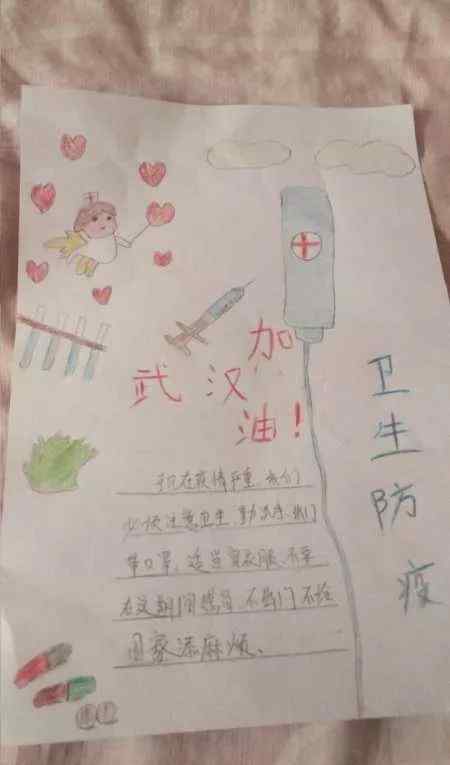 武汉加
油！
卫生防疫
现在疫情严重,我们
必须注意卫生,勤洗手,我们
带口罩,适当
在这期间 不出门不给
国家添麻烦、